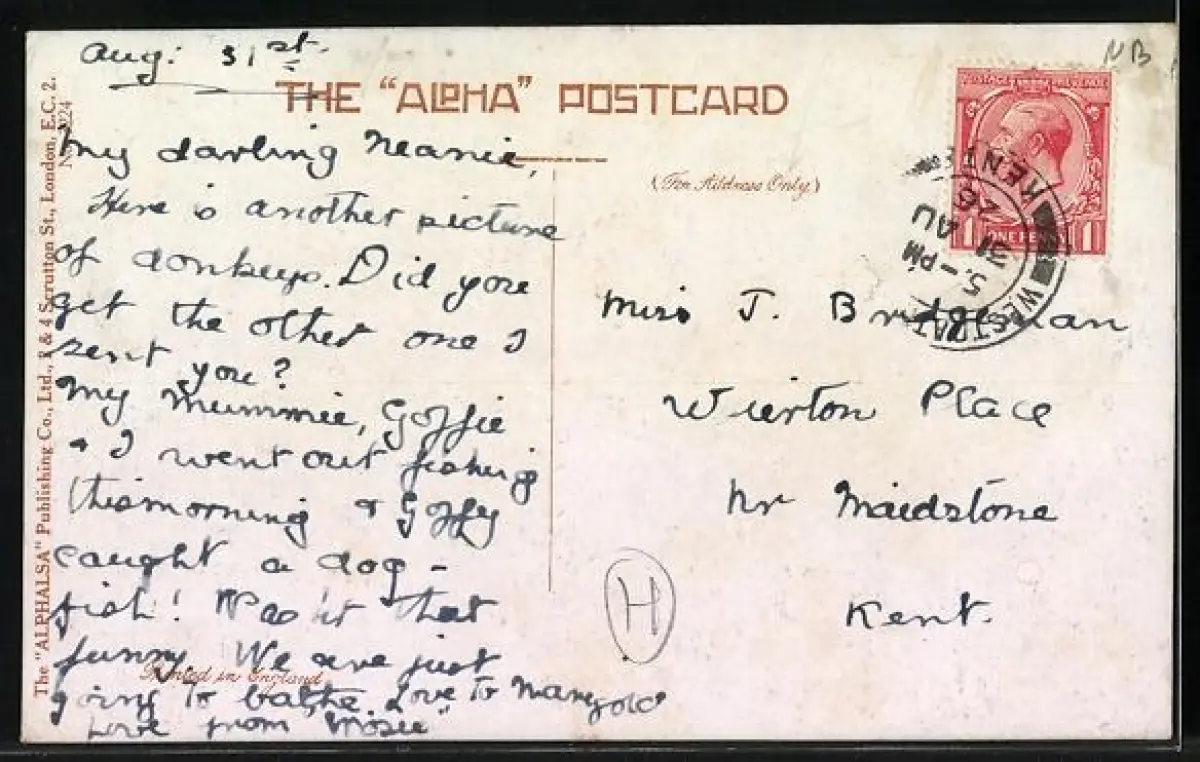 Aug: 31st.
THE "ALPHA" POSTCARD
NB
The "ALPHALSA" Publishing Co., Ltd., 2 & 4 Scrutton St., London, E.C. 2.
My darling Neanie,
Here is another picture
of donkeys. Did you
get the other one I
sent you?
My Mummie, Goffie
& I went out fishing
this morning & Goffy
caught a dog-
fish! Was'it that
funny. We are just
going to bathe. Love to Marygold
Love from "Mosie"
Printed in England.
(For Address Only)
POSTAGE REVENUE
1 ONE PENNY 1
KENT
5 - PM
31 AU
26
Miss J. Bridgeman
Wierton Place
Nr Maidstone
Kent.
H